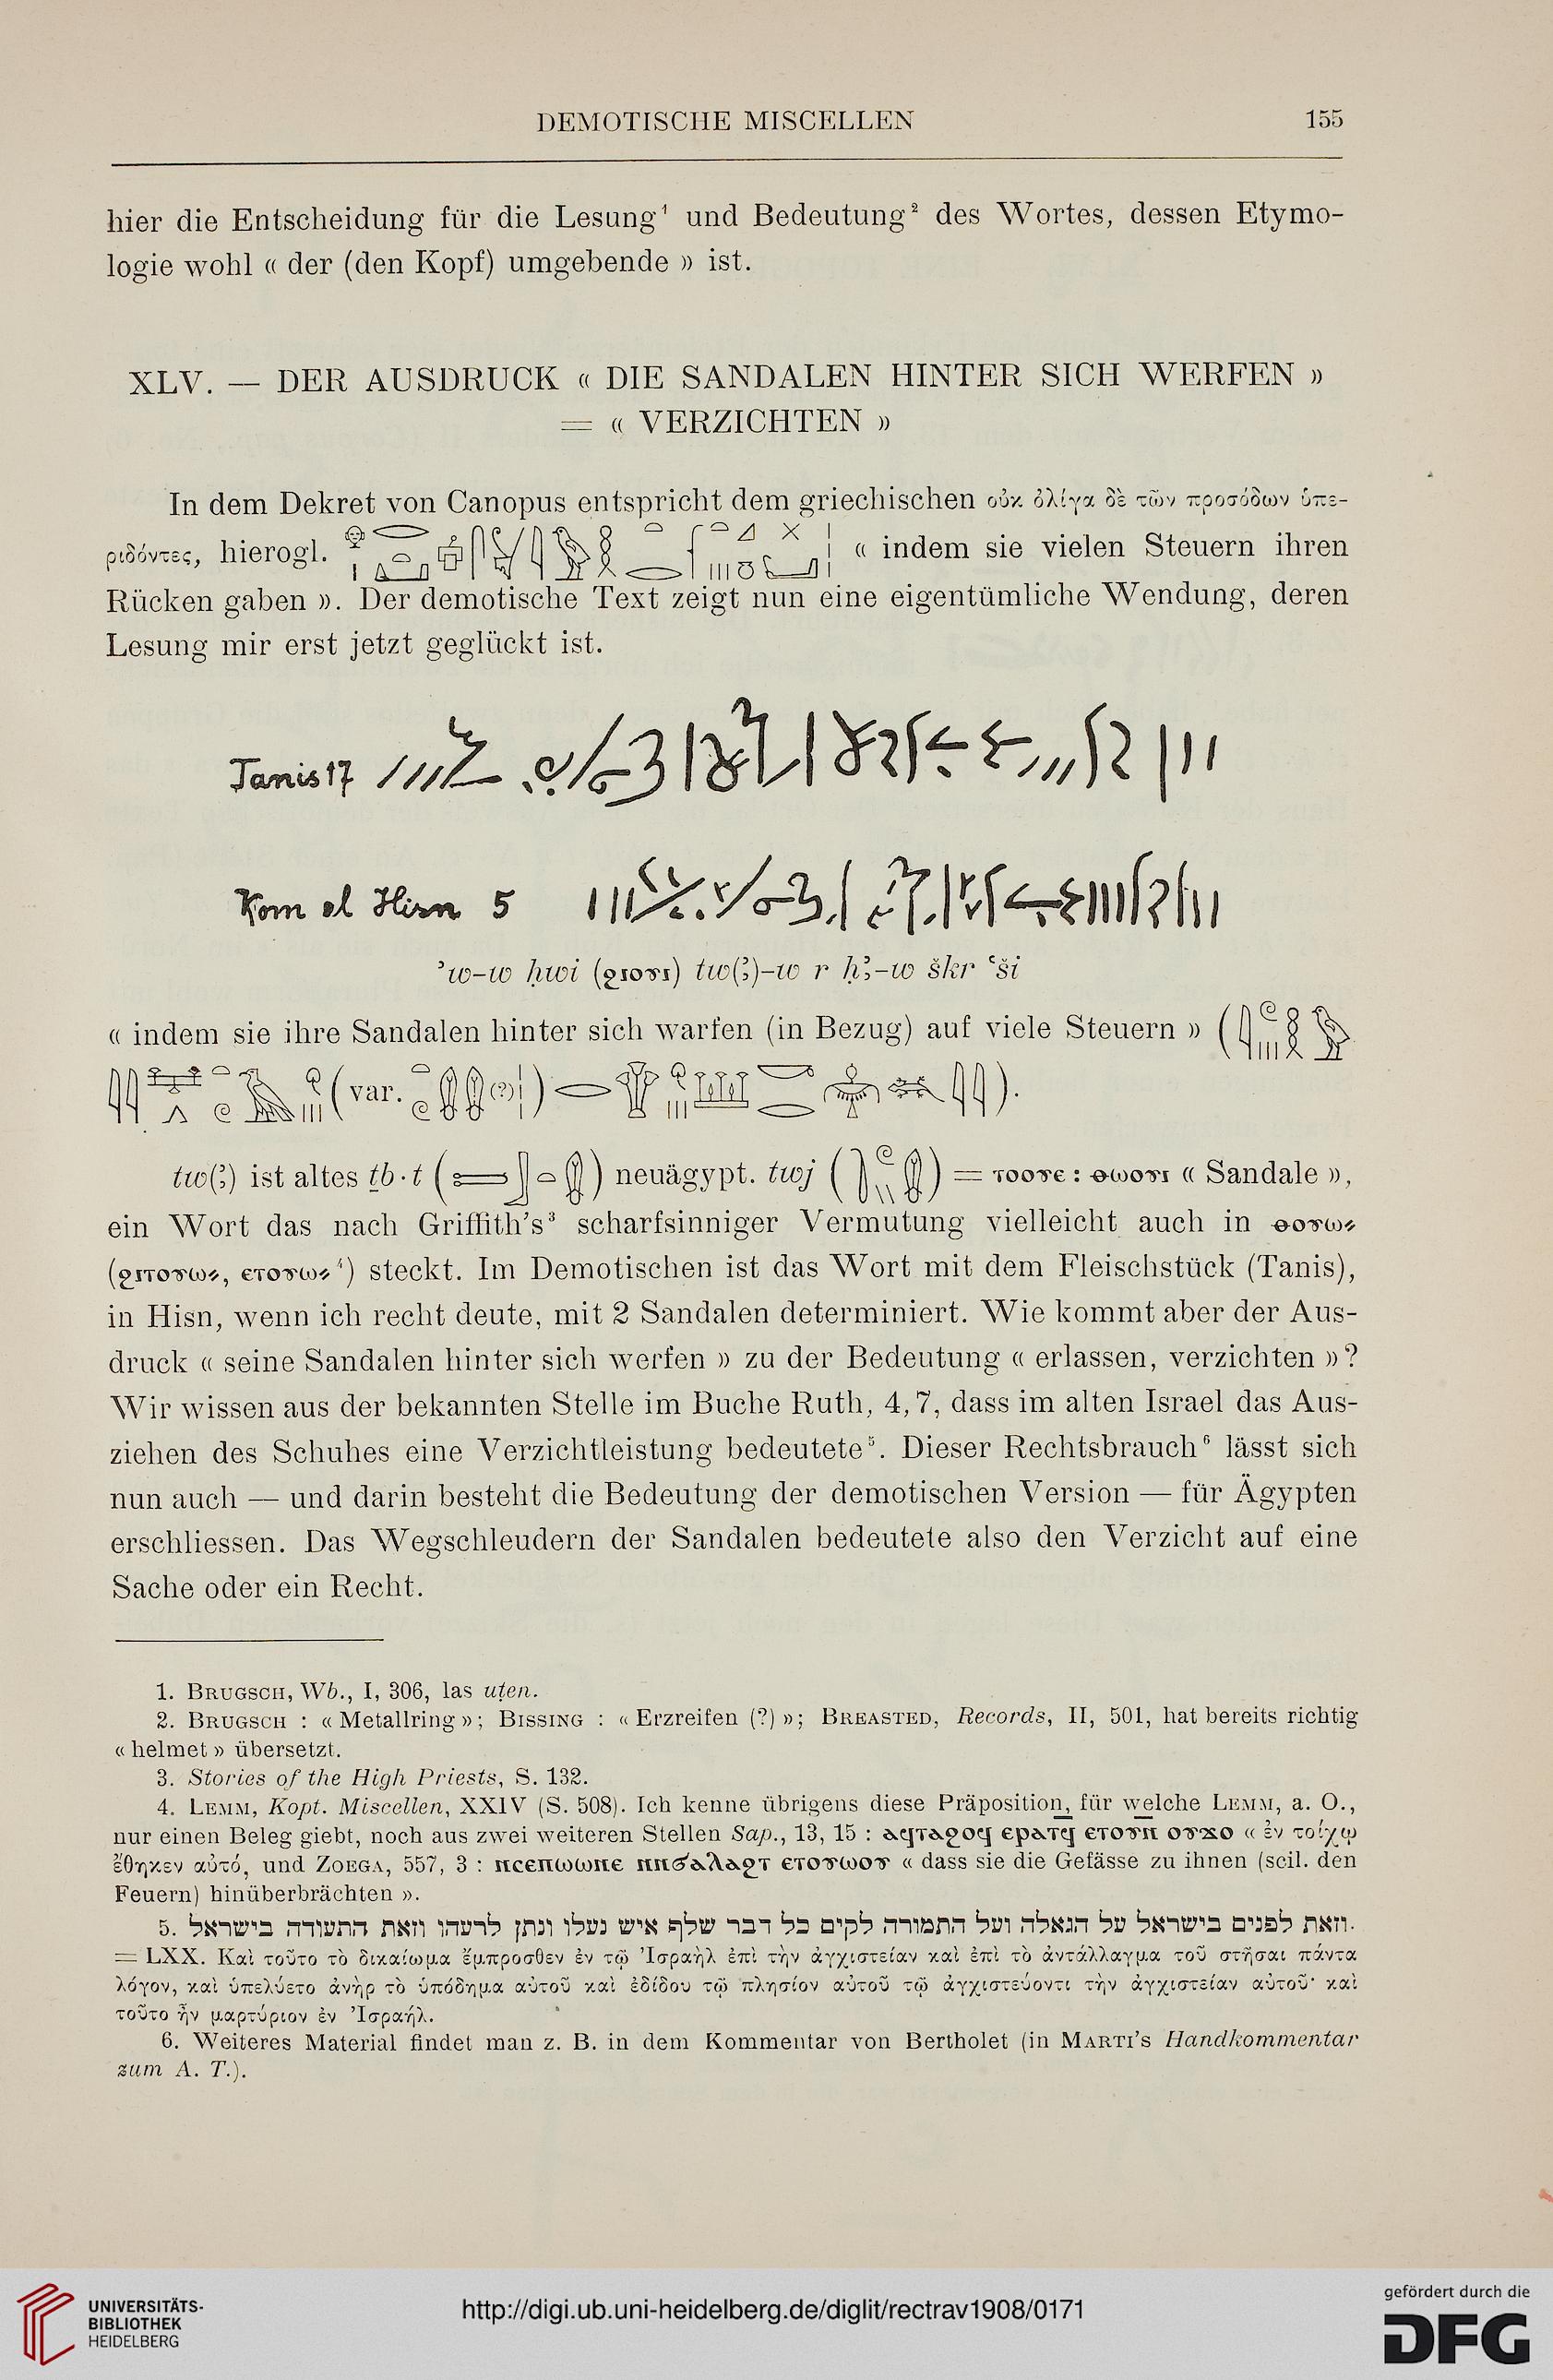 DEMOTISCHE MISCELLEN 155
hier die Entscheidung für die Lesung¹ und Bedeutung² des Wortes, dessen Etymo-
logie wohl « der (den Kopf) umgebende » ist.
XLV. — DER AUSDRUCK « DIE SANDALEN HINTER SICH WERFEN »
= « VERZICHTEN »
In dem Dekret von Canopus entspricht dem griechischen οὐκ ὀλίγα δὲ τῶν προσόδων ὑπε-
ριδόντες, hierogl. « indem sie vielen Steuern ihren
Rücken gaben ». Der demotische Text zeigt nun eine eigentümliche Wendung, deren
Lesung mir erst jetzt geglückt ist.
Tanis 17
Kom el Hisn 5
ʾw-w ḥwi (ϩⲓⲟⲩⲓ) tw(ꜣ)-w r ḥꜣ-w škr ʿši
« indem sie ihre Sandalen hinter sich warfen (in Bezug) auf viele Steuern » (
(var. (?) ) ).
tw(ꜣ) ist altes ṯb·t ( ) neuägypt. twj ( ) = ⲧⲟⲟⲩⲉ : ⲑⲱⲟⲩⲓ « Sandale »,
ein Wort das nach Griffith's³ scharfsinniger Vermutung vielleicht auch in ⲑⲟⲩⲱ⸗
(ϩⲓⲧⲟⲩⲱ⸗, ⲉⲧⲟⲩⲱ⸗⁴) steckt. Im Demotischen ist das Wort mit dem Fleischstück (Tanis),
in Hisn, wenn ich recht deute, mit 2 Sandalen determiniert. Wie kommt aber der Aus-
druck « seine Sandalen hinter sich werfen » zu der Bedeutung « erlassen, verzichten »?
Wir wissen aus der bekannten Stelle im Buche Ruth, 4, 7, dass im alten Israel das Aus-
ziehen des Schuhes eine Verzichtleistung bedeutete⁵. Dieser Rechtsbrauch⁶ lässt sich
nun auch — und darin besteht die Bedeutung der demotischen Version — für Ägypten
erschliessen. Das Wegschleudern der Sandalen bedeutete also den Verzicht auf eine
Sache oder ein Recht.
1. BRUGSCH, Wb., I, 306, las uṭen.
2. BRUGSCH : « Metallring »; BISSING : « Erzreifen (?) »; BREASTED, Records, II, 501, hat bereits richtig
« helmet » übersetzt.
3. Stories of the High Priests, S. 132.
4. LEMM, Kopt. Miscellen, XXIV (S. 508). Ich kenne übrigens diese Präposition, für welche LEMM, a. O.,
nur einen Beleg giebt, noch aus zwei weiteren Stellen Sap., 13, 15 : ⲁϥⲧⲁϩⲟϥ ⲉⲣⲁⲧϥ ⲉⲧⲟⲩⲛ̄ ⲟⲩϫⲟ « ἐν τοίχῳ
ἔθηκεν αὐτό, und ZOEGA, 557, 3 : ⲛⲥⲉⲡⲱⲱⲛⲉ ⲛⲛϭⲁⲗⲁϩⲧ ⲉⲧⲟⲩⲱⲟⲩ « dass sie die Gefässe zu ihnen (scil. den
Feuern) hinüberbrächten ».
5. וזאת לפנים בישראל על הגאלה ועל התמורה לקים כל דבר שלף איש נעלו ונתן לרעהו וזאת התעודה בישראל.
= LXX. Καὶ τοῦτο τὸ δικαίωμα ἔμπροσθεν ἐν τῷ Ἰσραὴλ ἐπὶ τὴν ἀγχιστείαν καὶ ἐπὶ τὸ ἀντάλλαγμα τοῦ στῆσαι πάντα
λόγον, καὶ ὑπελύετο ἀνὴρ τὸ ὑπόδημα αὐτοῦ καὶ ἐδίδου τῷ πλησίον αὐτοῦ τῷ ἀγχιστεύοντι τὴν ἀγχιστείαν αὐτοῦ· καὶ
τοῦτο ἦν μαρτύριον ἐν Ἰσραήλ.
6. Weiteres Material findet man z. B. in dem Kommentar von Bertholet (in MARTI'S Handkommentar
zum A. T.).
UNIVERSITÄTS-
BIBLIOTHEK
HEIDELBERG
http://digi.ub.uni-heidelberg.de/diglit/rectrav1908/0171
gefördert durch die
DFG